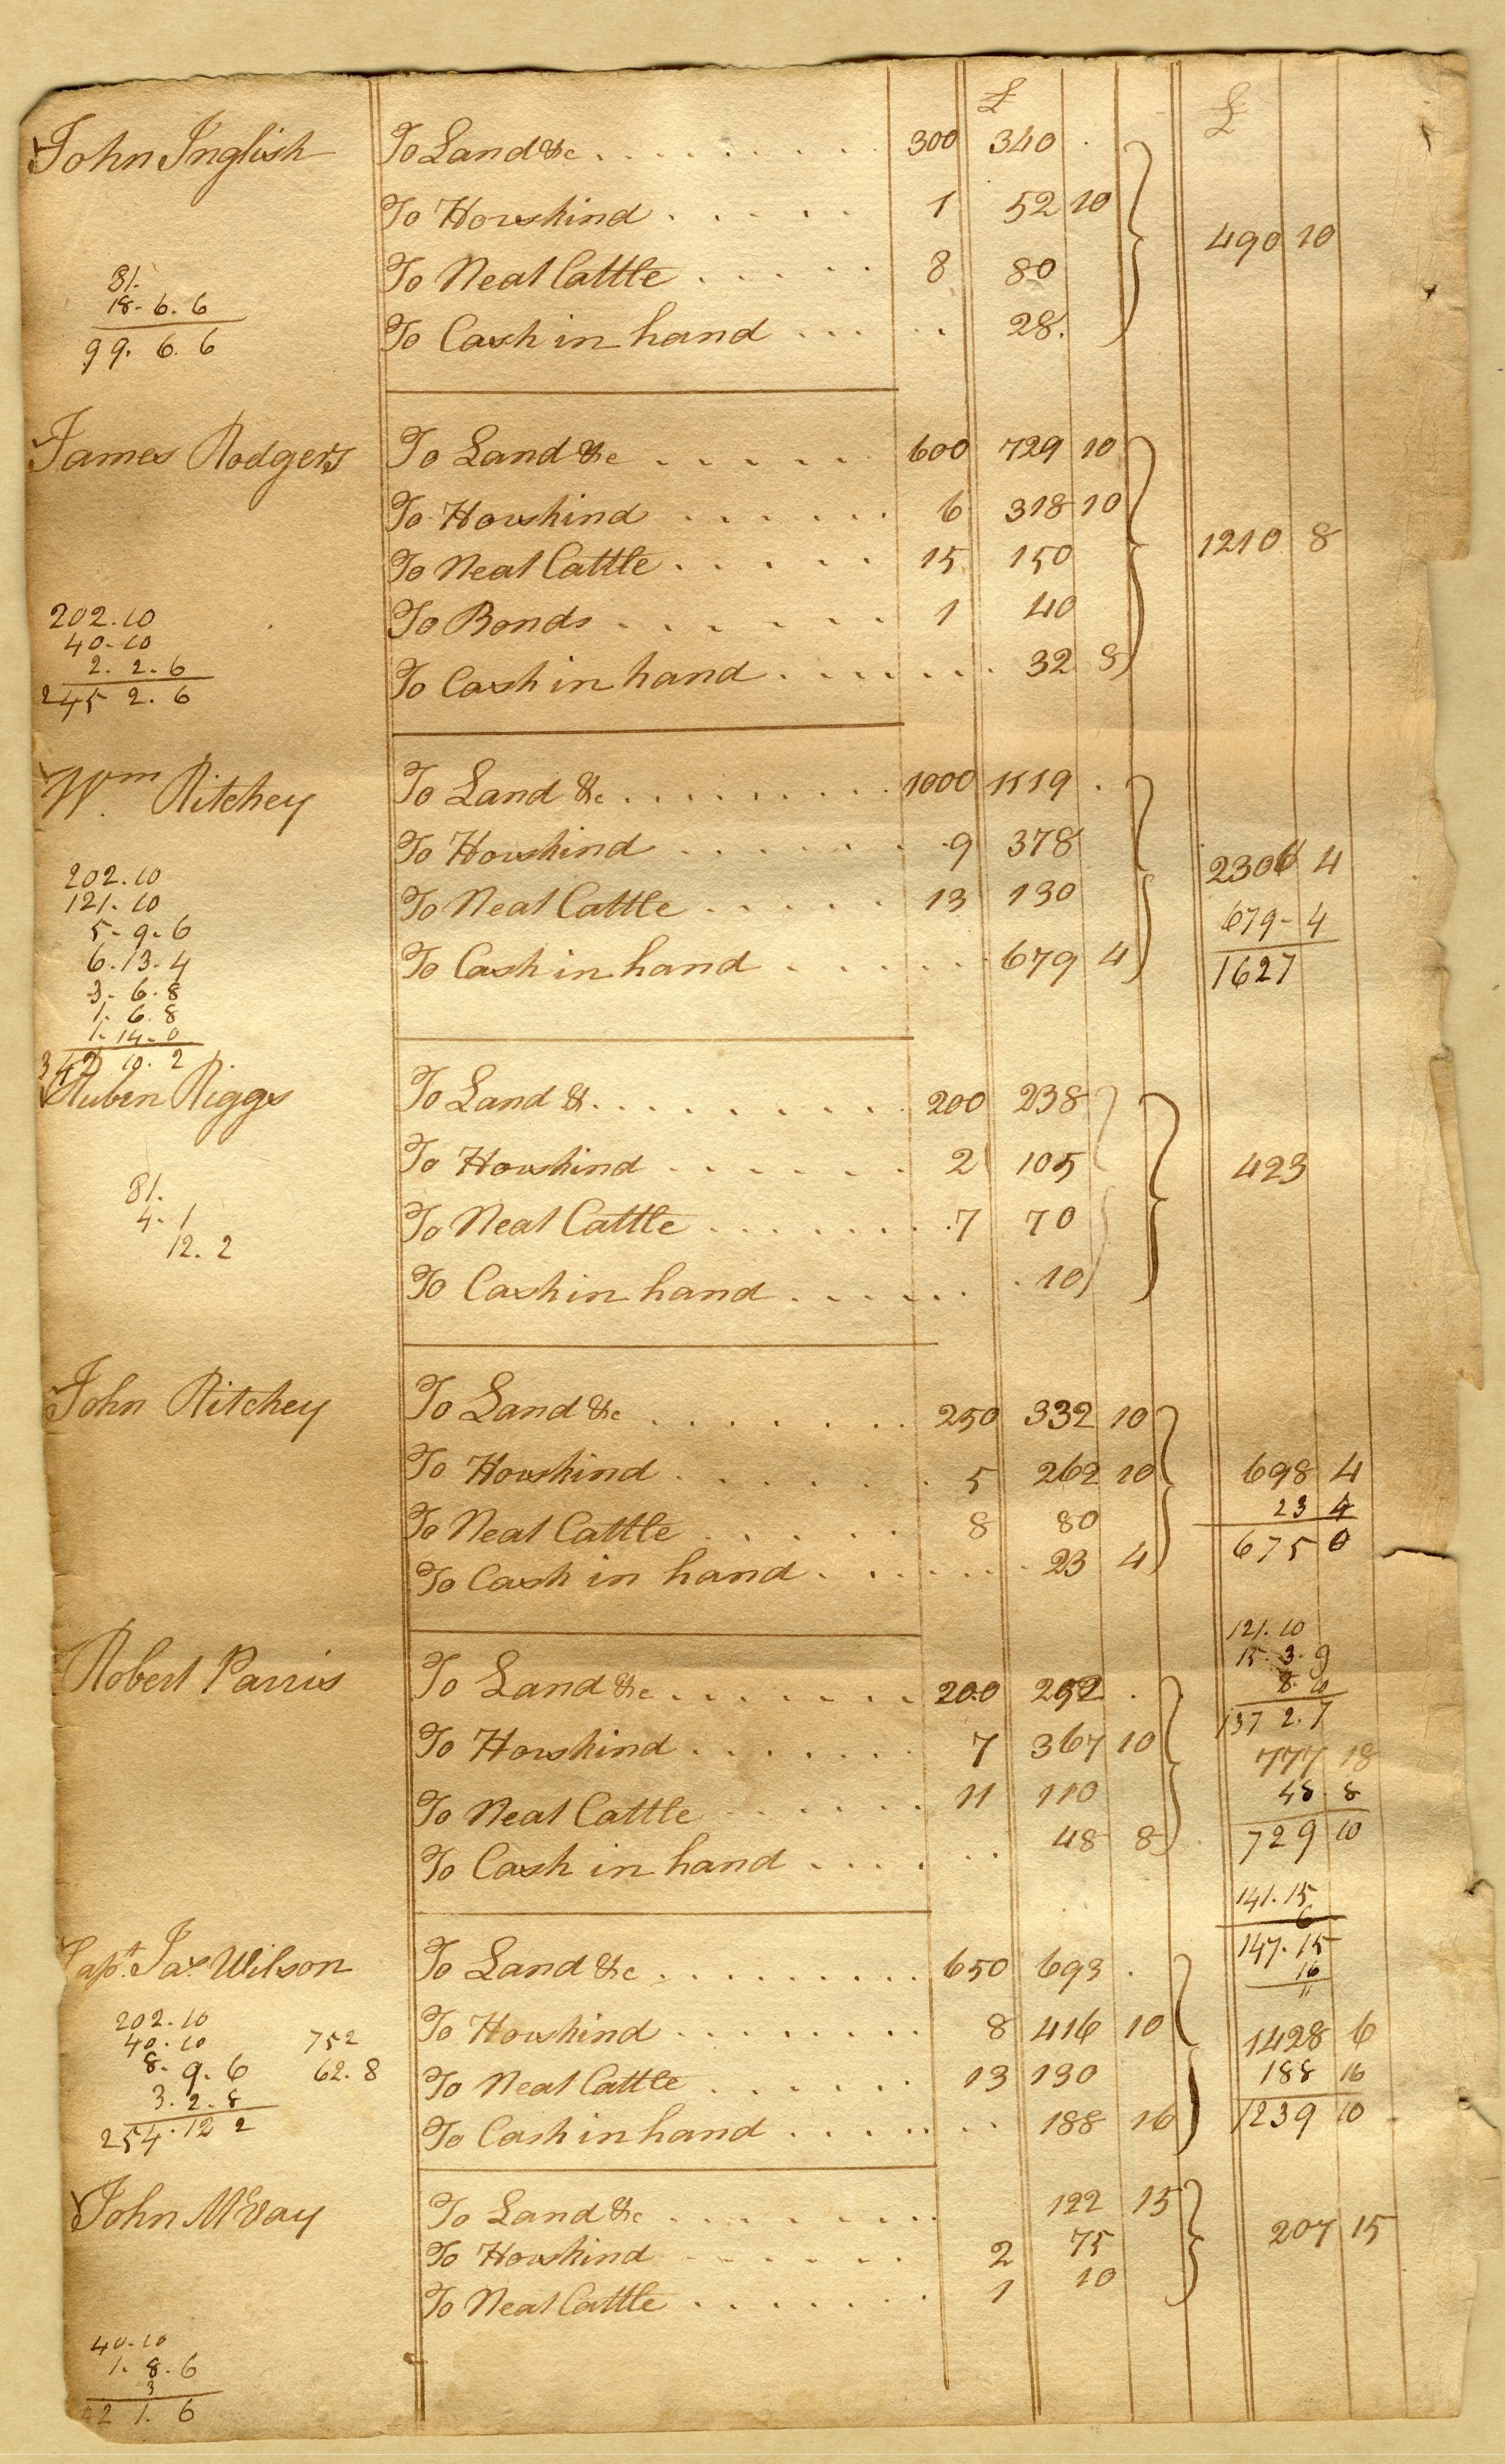 £ £
John Inglish To Land &c . . . . . . . . . 300 340 .
To Horskind . . . . . 1 52 10
490 10
To Neat Cattle . . . . . 8 80
81.
18. 6. 6
To Cash in hand . . . . . 28.
99. 6. 6
James Rodgers To Land &c . . . . . . 600 729 10
To Horskind . . . . . . 6 318 10
1210 8
To Neat Cattle . . . . . 15 150
To Bonds . . . . . . 1 40
202. 10
40. 10
2. 2. 6
To Cash in hand . . . . . . . 32 8
245 2. 6
Wm Ritchey To Land &c . . . . . . . . . 1000 1119 .
To Horskind . . . . . . 9 378
2306 4
202. 10
To Neat Cattle . . . . . 13 130
121. 10
679 - 4
5. 9. 6
6. 13. 4
To Cash in hand . . . . . . 679 4
1627
3. 6. 8
1. 6. 8
1. 14. 0
342 10. 2
Ruben Riggs To Land & . . . . . . . . . 200 238
To Horskind . . . . . . 2 105
423
81.
4. 1
To Neat Cattle . . . . . . . 7 70
12. 2
To Cash in hand . . . . . . . 10
John Ritchey To Land &c . . . . . . . 250 332 10
To Horskind . . . . . . 5 262 10
698 4
To Neat Cattle . . . . . 8 80
23 4
To Cash in hand . . . . . . . 23 4
675 0
121. 10
15. 3. 9
Robert Parris To Land &c . . . . . . . 200 252 .
8. 10
137 2. 7
To Horskind . . . . . . . 7 367 10
777 18
To Neat Cattle . . . . . . 11 110
48. 8
To Cash in hand . . . . . . 48 8
729 10
141. 15
6
147. 15
16
Capt. Jas. Wilson To Land &c . . . . . . . . . 650 693 .
202. 10
40. 10 752
To Horskind . . . . . . . . 8 416 10
1428 6
8. 9. 6 62. 8
To Neat Cattle . . . . . . 13 130
188 16
3. 2. 8
254. 12 2
To Cash in hand . . . . . . . 188 16
1239 10
John McVay To Land &c . . . . . . . . 122 15
207 15
To Horskind . . . . . . 2 75
To Neat Cattle . . . . . . . 1 10
40. 10
1. 8. 6
3
42 1. 6